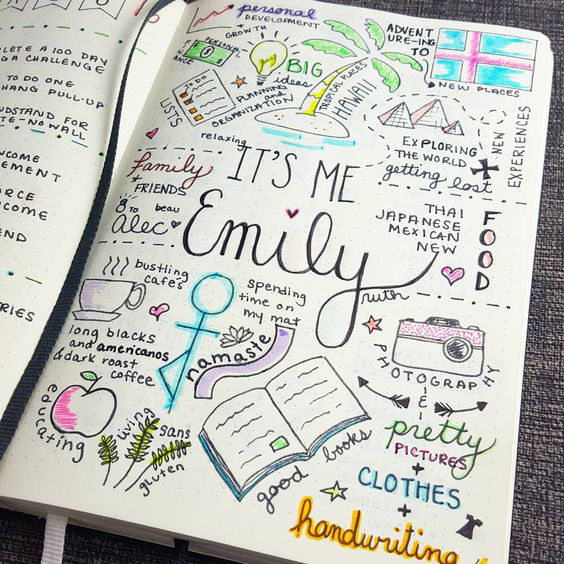 LETE A 100 DAY
GA CHALLENGE
TO DO ONE
HANG PULL-UP
NDSTAND FOR
TE - NO WALL
NCOME
EMENT
ORCE
NCOME
END
RIES
personal
DEVELOPMENT
+
GROWTH
PERSONAL
NANCE
BIG
ideas
PLANNING
and
ORGANIZATION
LISTS
relaxing
TROPICAL PLACES
HAWAII
ADVENT
URE-ING
TO
NEW PLACES
NEW
EXPERIENCES
EXPLORING
THE WORLD
getting lost
family
+
FRIENDS
IT'S ME
Emily
ruth
TO beau
alec
THAI
JAPANESE
MEXICAN
NEW
FOOD
bustling
cafes
long blacks
and americanos
& dark roast
coffee
spending
time on
my mat
namaste
PHOTOGRAPHY
educating
living
sans
gluten
good books
pretty
PICTURES
+
CLOTHES
+
handwriting